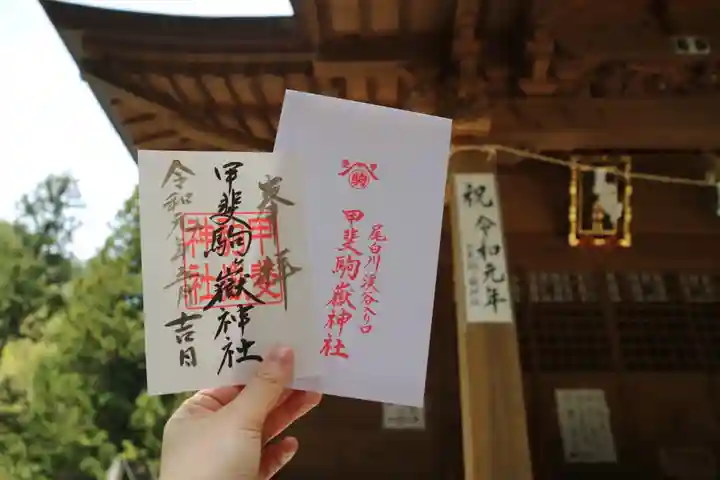 奉拝
甲斐駒嶽神社
令和元年 吉日
甲斐
駒嶽
神社
駒
尾白川渓谷入り口
甲斐駒嶽神社
祝令和元年